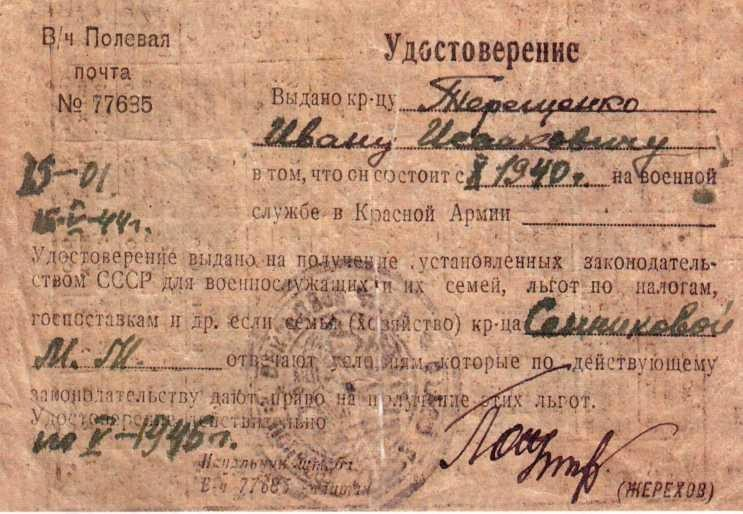 В/ч Полевая
почта
№ 77685
Удостоверение
Выдано кр-цу Терещенко
Ивану Исааковичу
в том, что он состоит с X 1940 г. на военной
службе в Красной Армии
25-01
15-V-44г.
Удостоверение выдано на получение установленных законодатель-
ством СССР для военнослужащих и их семей, льгот по налогам,
госпоставкам и др. если семья (хозяйство) кр-ца Сенниковой
М. М. отвечают условиям которые по действующему
законодательству дают право на получение этих льгот.
Удостоверение действительно
по V-1945г.
Начальник штаба
В/ч 77685
(ЖЕРЕХОВ)